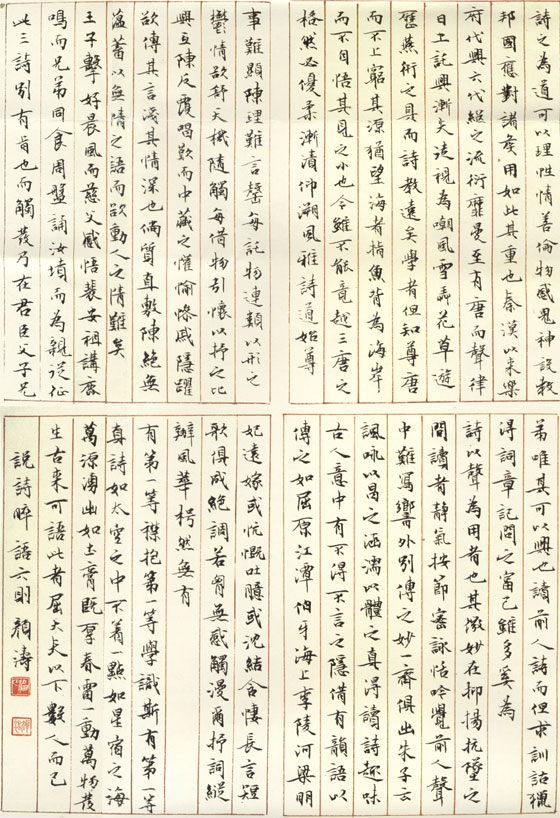 詩之為道可以理性情善倫物感鬼神設教
邦國應對諸侯用如此其重也秦漢以來樂
府代興六代繼之流衍靡曼至有唐而聲律
日工託興漸失徒視為嘲風雪弄花草遊
歷燕衎之具而詩教遠矣學者但知尊唐
而不上窮其源猶望海者指魚背為海岸
而不自悟其見之小也今雖不能竟越三唐之
格然必優柔漸漬仰溯風雅詩道始尊
事難顯陳理難言罄每託物連類以形之
鬱情欲舒天機隨觸每借物引懷以抒之比
興互陳反覆唱歎而中藏之懽愉慘戚隱躍
欲傳其言淺其情深也倘質直敷陳絕無
蘊蓄以無情之語而欲動人之情難矣
王子擊好晨風而慈父感悟裴安祖講鹿
鳴而兄弟同食周盤誦汝墳而為親從征
此三詩別有旨也而觸發乃在君臣父子兄
弟唯其可以興也讀前人詩而但求訓詁獵
得詞章記問之富已雖多奚為
詩以聲為用者也其微妙在抑揚抗墜之
間讀者靜氣按節密詠恬吟覺前人聲
中難寫響外別傳之妙一齊俱出朱子云
諷咏以昌之涵濡以體之真得讀詩趣味
古人意中有不得不言之隱借有韻語以
傳之如屈原江潭伯牙海上李陵河梁明
妃遠嫁或忼慨吐臆或沈結含悽長言短
歌俱成絕調若胷無感觸漫爾抒詞縱
辦風華枵然無有
有第一等襟抱第一等學識斯有第一等
真詩如太空之中不着一點如星宿之海
萬源湧出如土膏既厚春雷一動萬物發
生古來可語此者屈大夫以下數人而已
說詩晬語六則顏濤